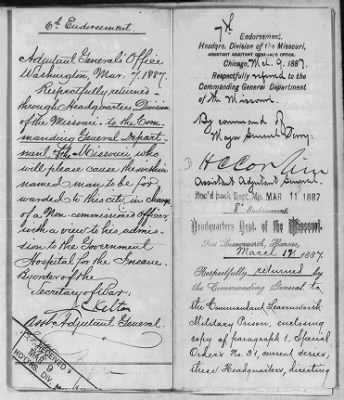 6th Endorsement
Adjutant General's Office
Washington, Mar. 7. 1887.
Respectfully returned
through Headquarters Division
of the Missouri to the Com-
manding General Depart-
ment of the Missouri, who
will please cause the within
named man to be for-
warded to this city, in charge
of a Non-commissioned Officer
with a view to his admis-
sion to the Government
Hospital for the Insane.
By order of the
Secretary of War.
Kelton
Asst. Adjutant General.
RECEIVED
MAR 9
HDQRS. DIV.
7th
Endorsement.
Headqrs. Division of the Missouri,
ASSISTANT ADJUTANT GENERAL'S OFFICE,
Chicago, Mch. 9. 1887.
Respectfully referred to the
Commanding General Department
of the Missouri.
By command of
Major General Terry:
Assistant Adjutant General.
Rec'd back Dept. Mo. MAR 11 1887
8th Endorsement.
Headquarters Dept. of the Missouri.
Fort Leavenworth, Kansas,
March 12 1887
Respectfully returned by
the Commanding General to
the Commandant Leavenworth
Military Prison, enclosing
copy of paragraph 1, Special
Orders No. 31, current series,
these Headquarters, directing